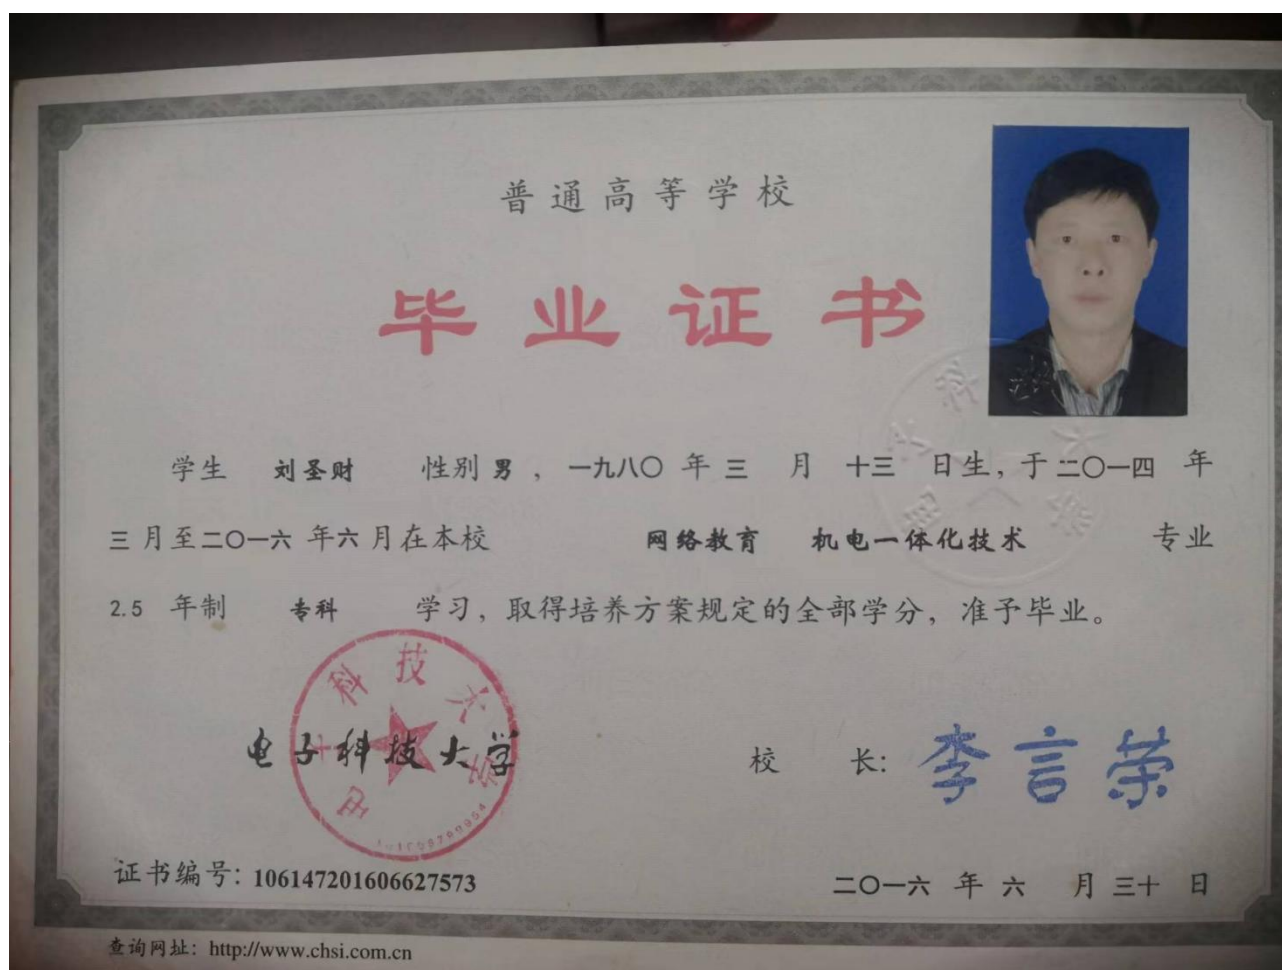 普通高等学校
毕业证书
学生 刘圣财 性别 男 ，一九八〇 年 三 月 十三 日生，于 二〇一四 年
三 月至 二〇一六 年 六 月在本校 网络教育 机电一体化技术 专业
2.5 年制 专科 学习，取得培养方案规定的全部学分，准予毕业。
电子科技大学
校 长：李言荣
证书编号：106147201606627573
二〇一六 年 六 月 三十 日
查询网址：http://www.chsi.com.cn